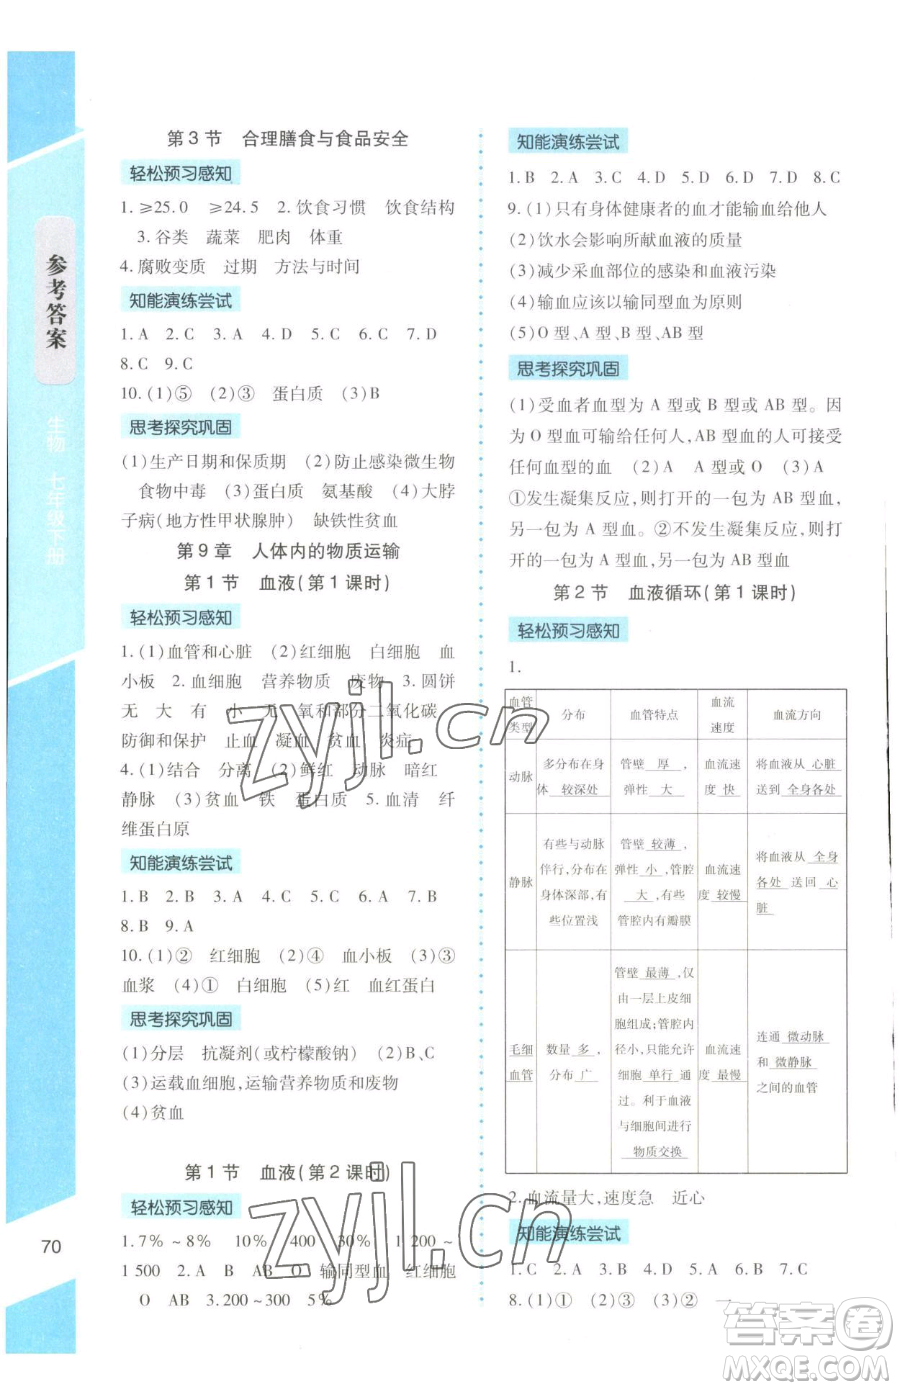 参考答案
生物 七年级下册
70
第3节 合理膳食与食品安全
轻松预习感知
1.≥25.0 ≥24.5 2.饮食习惯 饮食结构
3.谷类 蔬菜 肥肉 体重
4.腐败变质 过期 方法与时间
知能演练尝试
1.A 2.C 3.A 4.D 5.C 6.C 7.D
8.C 9.C
10.(1)⑤ (2)③ 蛋白质 (3)B
思考探究巩固
(1)生产日期和保质期 (2)防止感染微生物
食物中毒 (3)淀粉 氨基酸 (4)大脖
子病(地方性甲状腺肿) 缺铁性贫血
第9章 人体内的物质运输
第1节 血液(第1课时)
轻松预习感知
1.(1)血管和心脏 (2)红细胞 白细胞 血
小板 2.血细胞 营养物质 废物 3.圆饼
无 大 有 小 无 氧和部分二氧化碳
防御和保护 止血 凝血 贫血 炎症
4.(1)结合 分离 (2)鲜红 动脉 暗红
静脉 (3)贫血 铁 蛋白质 5.血清 纤
维蛋白原
知能演练尝试
1.B 2.B 3.A 4.C 5.C 6.A 7.B
8.B 9.A
10.(1)② 红细胞 (2)④ 血小板 (3)③
血浆 (4)① 白细胞 (5)红 血红蛋白
思考探究巩固
(1)分层 抗凝剂(或柠檬酸钠) (2)B、C
(3)运载血细胞,运输营养物质和废物
(4)贫血
第1节 血液(第2课时)
轻松预习感知
1.7%~8% 10% 400 30% 1 200~
1 500 2.A B AB O 输同型血 红细胞
O AB 3.200~300 5%
知能演练尝试
1.B 2.A 3.C 4.C 5.D 6.A 7.D 8.C
9.(1)只有身体健康者的血才能输血给他人
(2)饮水会影响所献血液的质量
(3)减少采血部位的感染和血液污染
(4)输血应该以输同型血为原则
(5)O型、A型、B型、AB型
思考探究巩固
(1)受血者血型为A型或B型或AB型。因
为O型血可输给任何人,AB型血可接受任
何血型的血 (2)A A型或O (3)
①发生凝集反应,则打开的一包为AB型血,
另一包为A型血。②不发生凝集反应,则打
开的一包为A型血,另一包为AB型血
第2节 血液循环(第1课时)
轻松预习感知
1.
血管类型 分布 血管特点 血流速度 血流方向
动脉 多分布在身体 较深处 管壁 厚,弹性 大 血流速度 快 将血液从 心脏 送到 全身各处
静脉 有些与动脉伴行,分布在身体深部,有些位置浅 管壁 较薄,弹性 小,管腔 大,有些管腔内有瓣膜 血流速度 较慢 将血液从 全身各处 送回 心脏
毛细血管 数量 多,分布 广 管壁 最薄,仅由一层上皮细胞组成;管腔内径小,只能允许红细胞 单行 通过。利于血液与细胞间进行 物质交换 血流速度 最慢 连通 微动脉 和 微静脉 之间的血管
2.血流量大,速度急 近心
知能演练尝试
1.C 2.A 3.D 4.D 5.A 6.B 7.C
8.(1)① (2)③ (3)②
zyjl.cn
zyjl.cn
答案圈
MXQE.COM